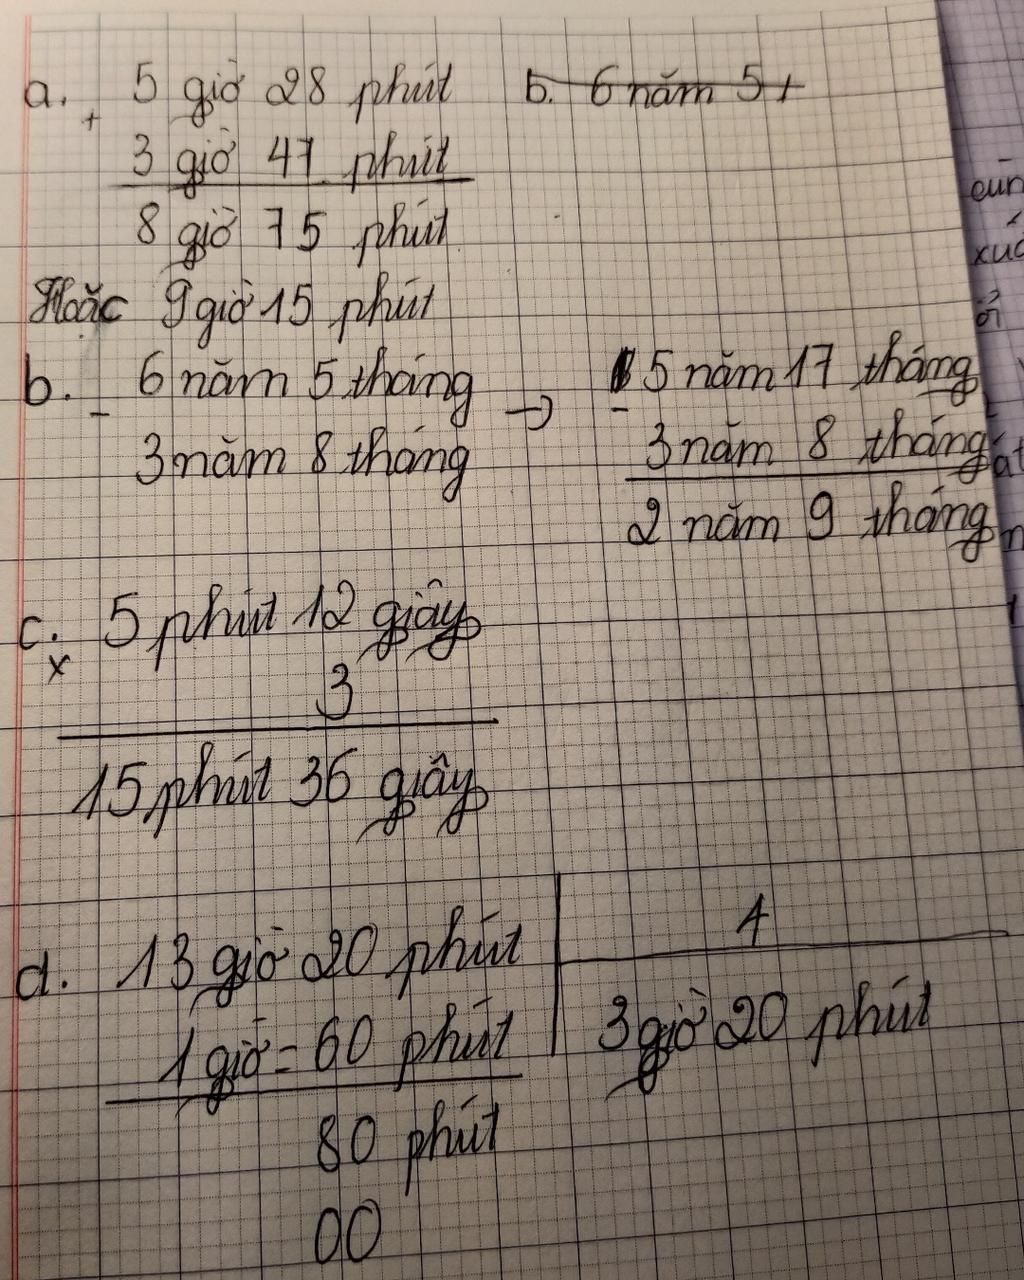 a. 5 giờ 28 phút b. 6 năm 5 t
+
3 giờ 47 phút
8 giờ 75 phút
Hoặc 9 giờ 15 phút
b. 6 năm 5 tháng → 5 năm 17 tháng
- -
3 năm 8 tháng 3 năm 8 tháng
2 năm 9 tháng
c. 5 phút 12 giây
x
3
15 phút 36 giây
d. 13 giờ 20 phút 4
1 giờ = 60 phút 3 giờ 20 phút
80 phút
00